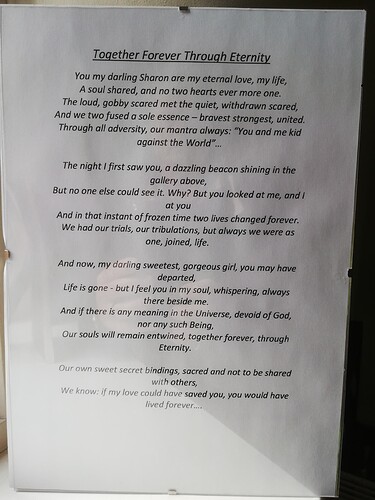 Together Forever Through Eternity
You my darling Sharon are my eternal love, my life,
A soul shared, and no two hearts ever more one.
The loud, gobby scared met the quiet, withdrawn scared,
And we two fused a sole essence – bravest strongest, united.
Through all adversity, our mantra always: “You and me kid
against the World”…
The night I first saw you, a dazzling beacon shining in the
gallery above,
But no one else could see it. Why? But you looked at me, and I
at you
And in that instant of frozen time two lives changed forever.
We had our trials, our tribulations, but always we were as
one, joined, life.
And now, my darling sweetest, gorgeous girl, you may have
departed,
Life is gone - but I feel you in my soul, whispering, always
there beside me.
And if there is any meaning in the Universe, devoid of God,
nor any such Being,
Our souls will remain entwined, together forever, through
Eternity.
Our own sweet secret bindings, sacred and not to be shared
with others,
We know: if my love could have saved you, you would have
lived forever….